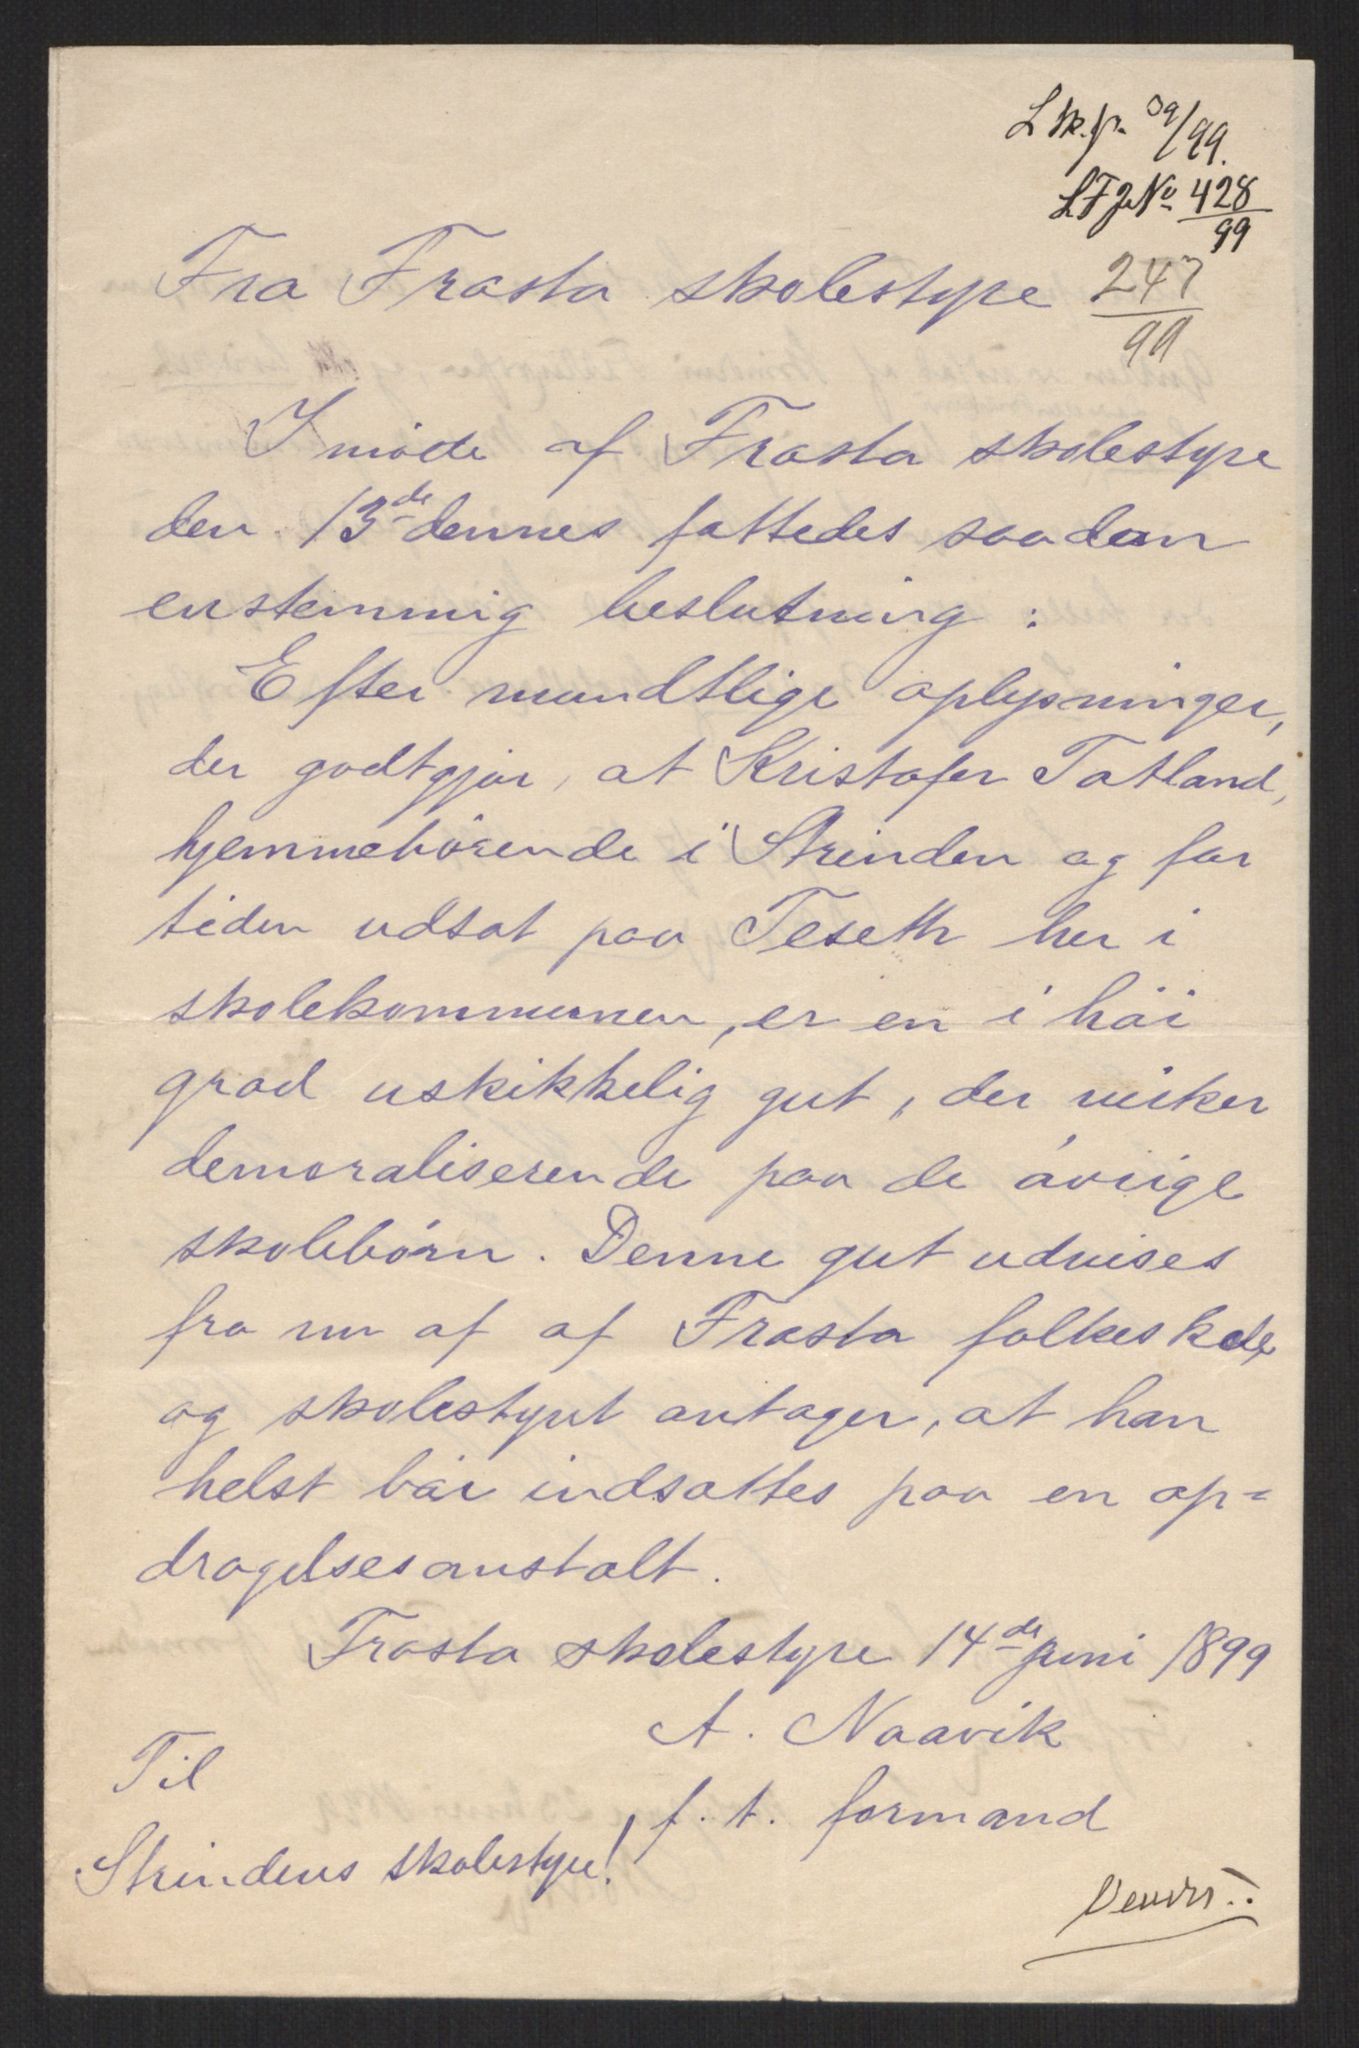 L sk. p. 39/99.
LF J No 428/99
Fra Frosta skolestyre 247/99
I möde af Frosta skolestyre
den 13de dennes fattedes saadan
enstemmig beslutning :
Efter mundtlige oplysninger,
der godtgjör, at Kristofer Totland,
hjemmehörende i Strinden og for
tiden udsat paa Teseth her i
skolekommunen, er en i höi
grad uskikkelig gut, der virker
demoraliserende paa de övrige
skolebörn. Denne gut udvises
fra nu af af Frosta folkeskole,
og skolestyret antager, at han
helst bör indsættes paa en op=
dragelsesanstalt.
Frosta skolestyre 14de juni 1899
A. Naavik
f. t. formand
Til
Strindens skolestyre!
Vend!